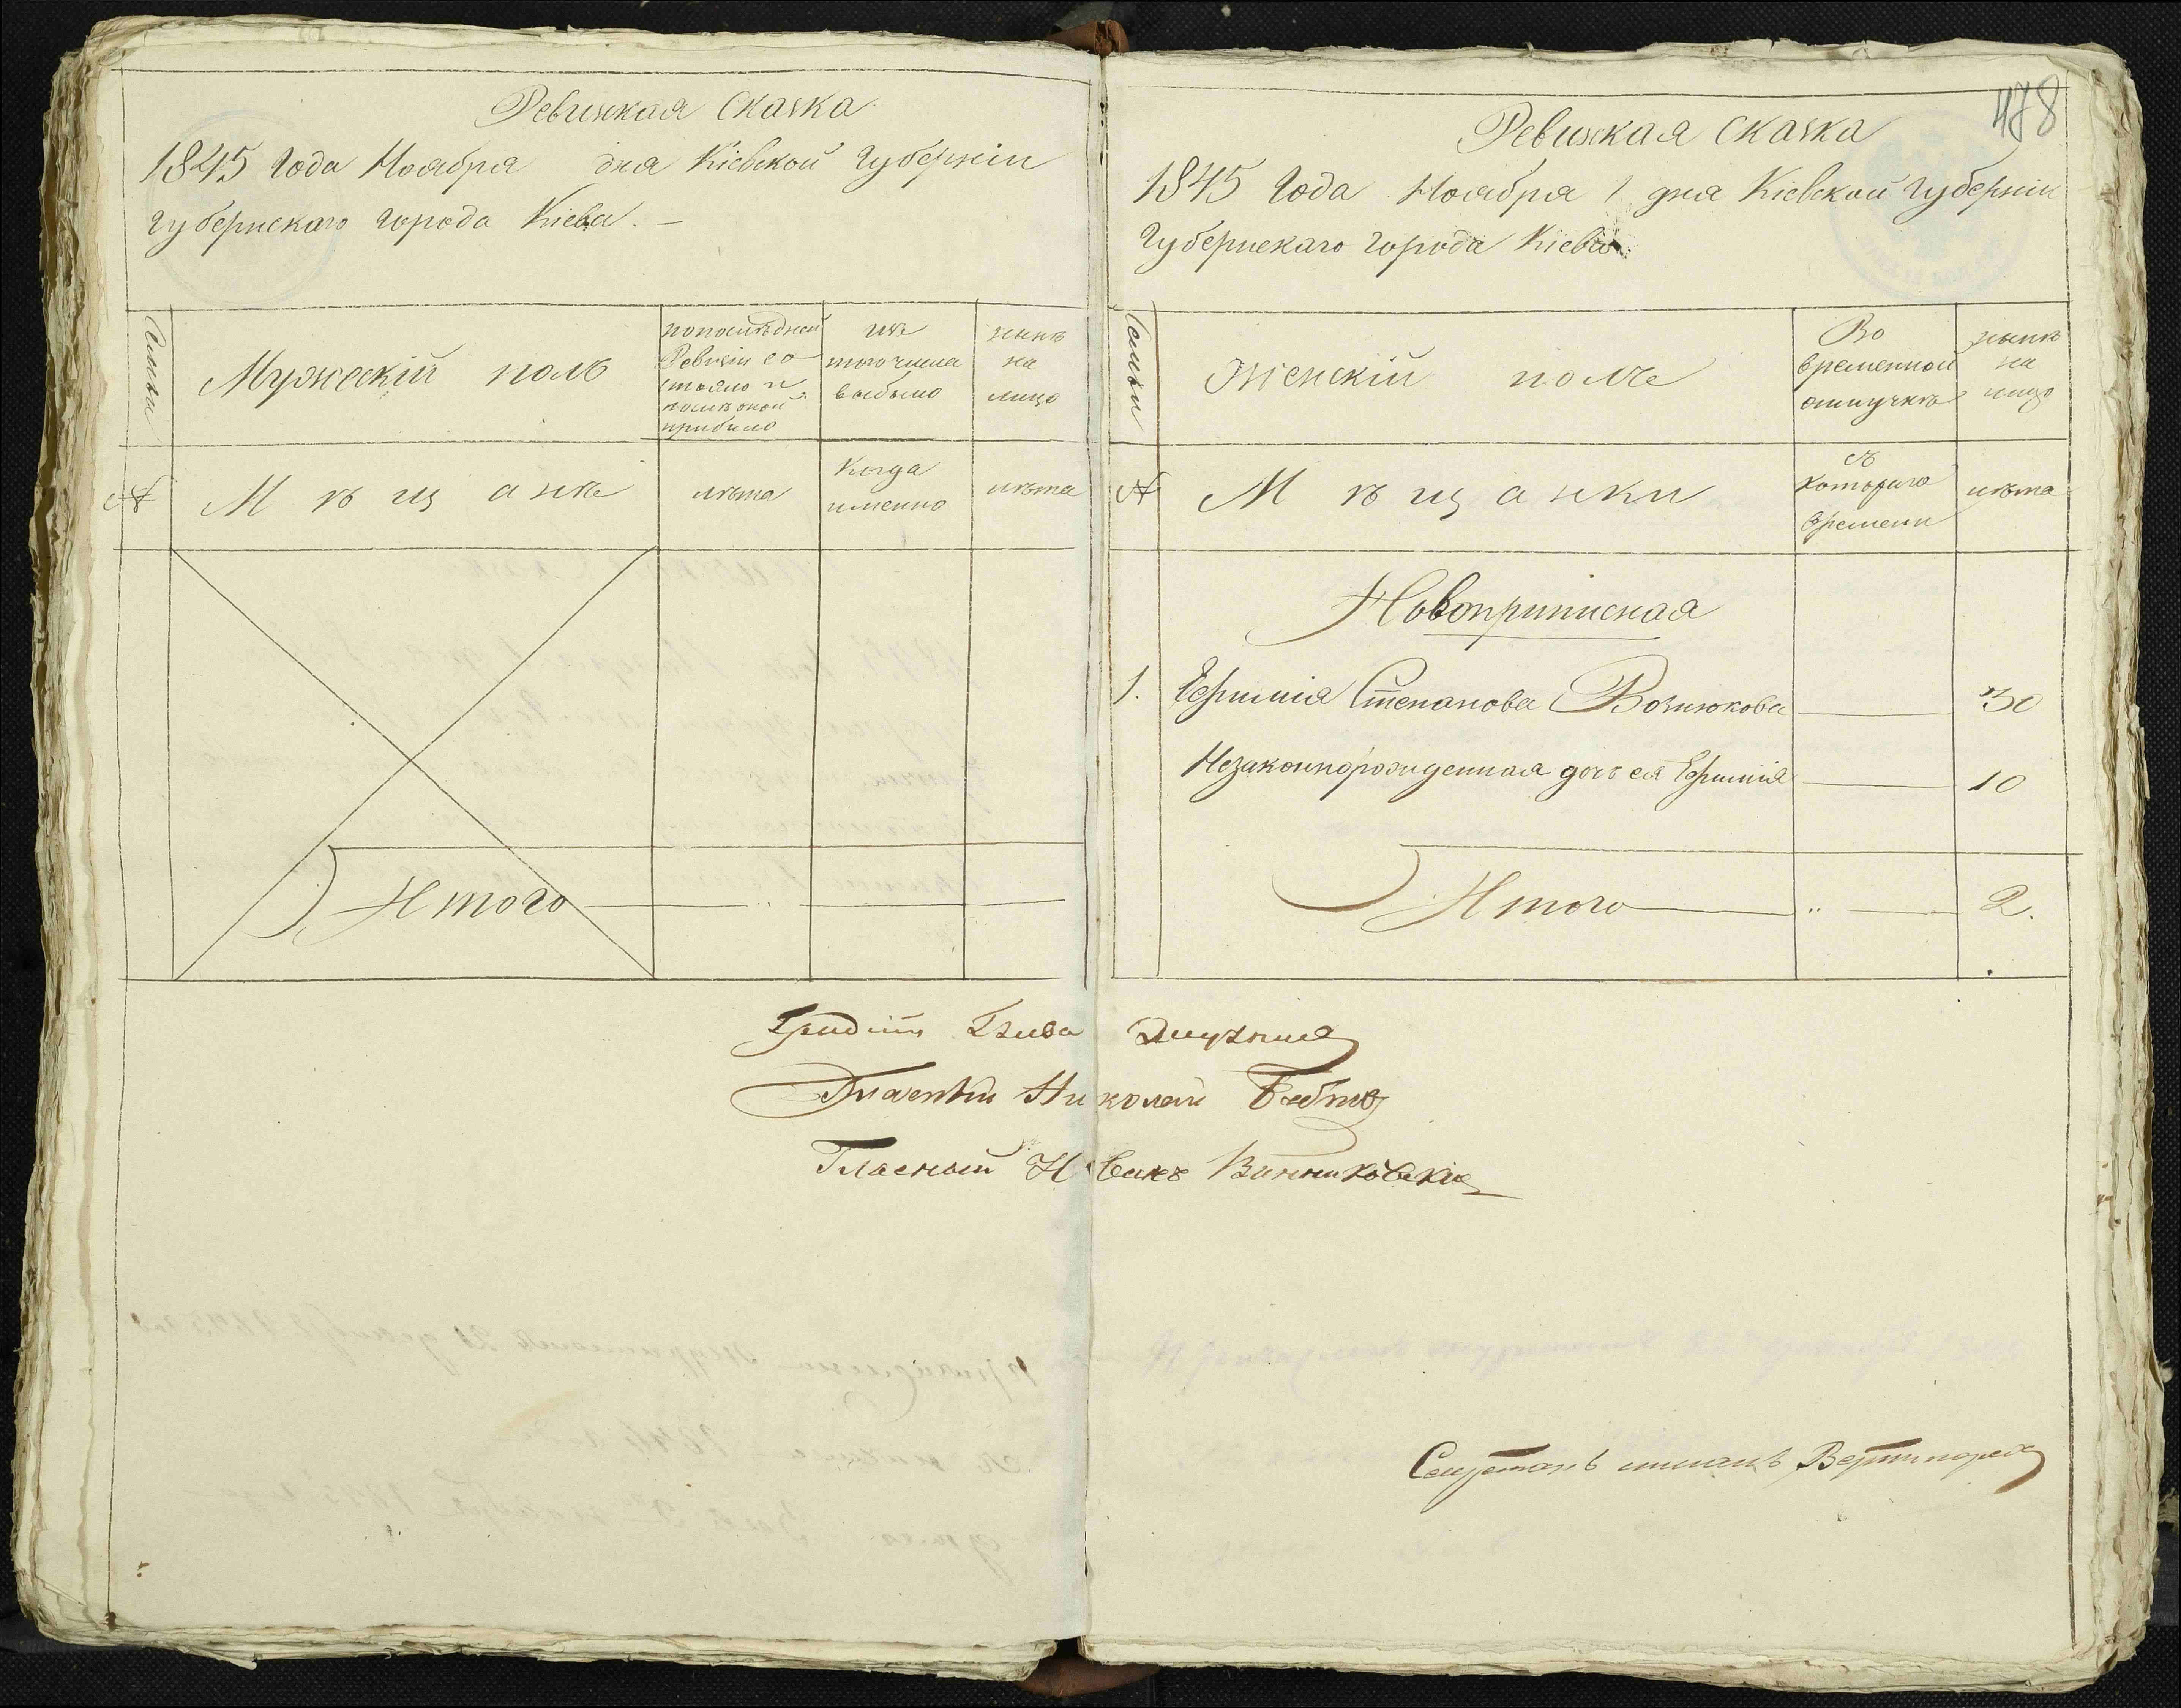 Ревизкая Сказка
1845 Года Ноября дня Кіевской Губерніи
Губернскаго Города Кіева. —
Семьи
Мужескій полъ
по последней
Ревизіи со
стояло и
после оной
прибыло
изъ
того числа
выбыло
ныне
на
лицо
№
Мѣщане
лѣта
Когда
именно
лѣта
Итого
478
Ревизкая Сказка
1845 Года Ноября 1 дня Кіевской Губерніи
Губернскаго Города Кіева
Семьи
Женскій полъ
Во
временной
отлучкѣ
нынѣ
на
лицо
№
Мѣщанки
съ
котораго
времени
лѣта
Новоприписная
1. Ефимія Степанова Вознюкова 30
Незаконнорожденная дочь ея Ефимія 10
Итого 2.
Гласный Николай
Гласный Иванъ Винниковскій